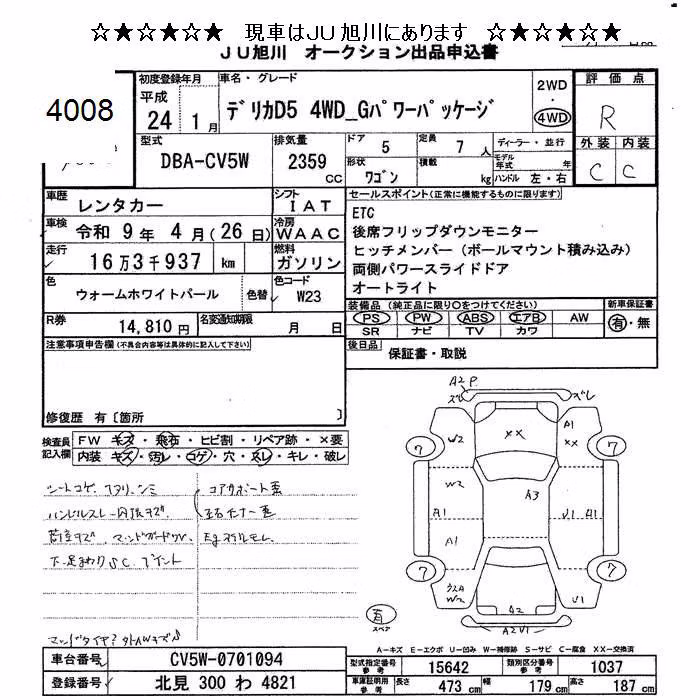 ☆★☆★☆★　現車はＪＵ旭川にあります　☆★☆★☆★
ＪＵ旭川　オークション出品申込書
4008
初度登録年月
平成
24 1月
車名・グレード
ﾃﾞﾘｶD5 4WD_Gﾊﾟﾜｰﾊﾟｯｹｰｼﾞ
2WD
・
4WD
評価点
R
型式
DBA-CV5W
排気量
2359
CC
ドア
5
定員
7人
形状
ワゴン
積載
kg
ディーラー・並行
モデル年式 年
ハンドル 左・右
外装 内装
C C
車歴
レンタカー
シフト
IAT
車検
令和 9年 4月(26日)
冷房
WAAC
走行
16万3千937 km
燃料
ガソリン
色
ウォームホワイトパール
色替
色コード
W23
R券
14,810円
名変通知期限
月 日
セールスポイント(正常に機能するものに限ります)
ETC
後席フリップダウンモニター
ヒッチメンバー（ボールマウント積み込み）
両側パワースライドドア
オートライト
装備品（純正品に限り○をつけてください）
新車保証書
PS PW ABS エアB AW
SR ナビ TV カワ
有・無
後日品
保証書・取説
注意事項申告欄(不具合内容等は具体的に記入して下さい)
修復歴 有〔箇所 〕
検査員記入欄
FW キズ・飛石・ヒビ割・リペア跡・×要
内装 キズ・汚レ・コゲ・穴・スレ・キレ・破レ
下・足まわりSC.
A2 P
ズレ
ズレ
W2
××
A1
××
7
7
W2
A3
A1
A1
U1 A1
7
7
W2
A2
U1
A2 U1
有
スペア
A-キズ E-エクボ U-凹み W-補修跡 S-サビ C-腐食 XX-交換済
車台番号
CV5W-0701094
登録番号
北見 300 わ 4821
型式指定番号
参考
15642
類別区分番号
参考
1037
車庫証明用
参考
長さ
473 cm
幅
179 cm
高さ
187 cm